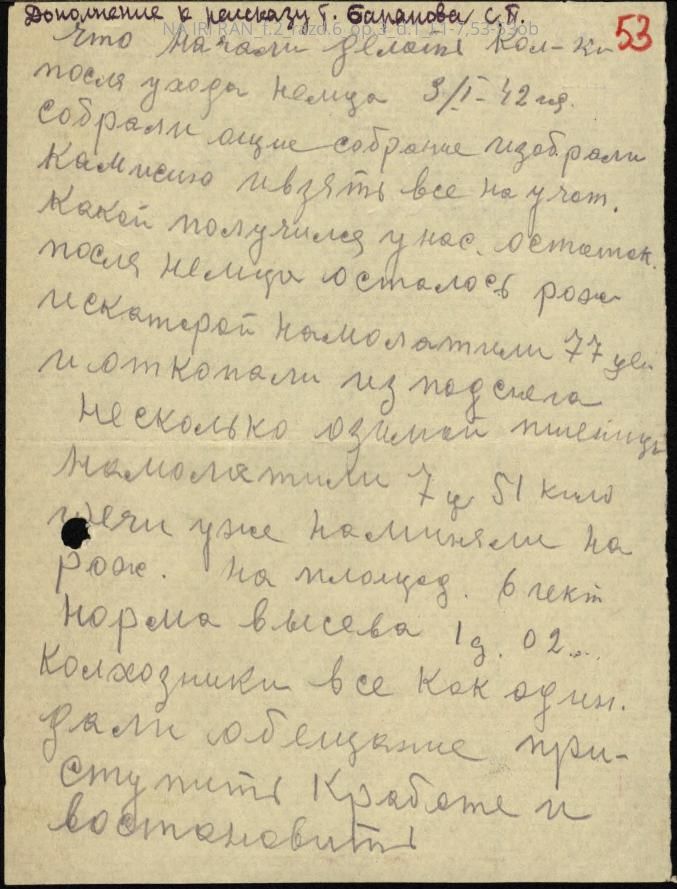 Дополнение к рассказу т. Баранова С.П.
NA IRI RAN_f.2_razd.6_op.3_d.1_21-7,53-53ob
53
Что начали делать Кол-ки
посля ухода немца 3/I-42 гд.
собрали ощие собрание изобрали
Камисию ивзять все на учот.
Какой получился унас. остаток.
после немца осталось рож
искаторой намолатили 77 цен
и откопали из подснега
несколько озимой пшеницы
намолатили 7 ц 51 кило
уже наминяли на
рож. на площад. 6 гект
норма высева 1 ц. 02
Колхозники все как один.
дали обещание при-
ступить Кработе и
востоновить